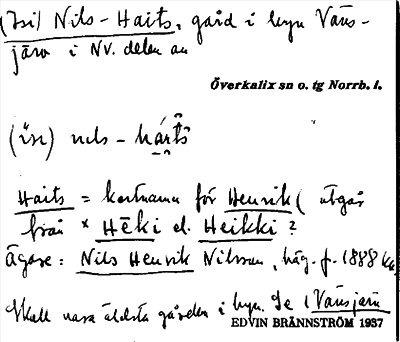 (Isi) Nils-Haits, gård i byn Väns-
järv i NV. delen av
Överkalix sn o. tg Norrb. l.
Haits = kortnamn för Henrik (utgår
från * Hēki el. Heikki?
Ägare: Nils Henrik Nilsson, häg. f. 1888
Skall vara äldsta gården i byn. Se (Vänsjärv
EDVIN BRÄNNSTRÖM 1937